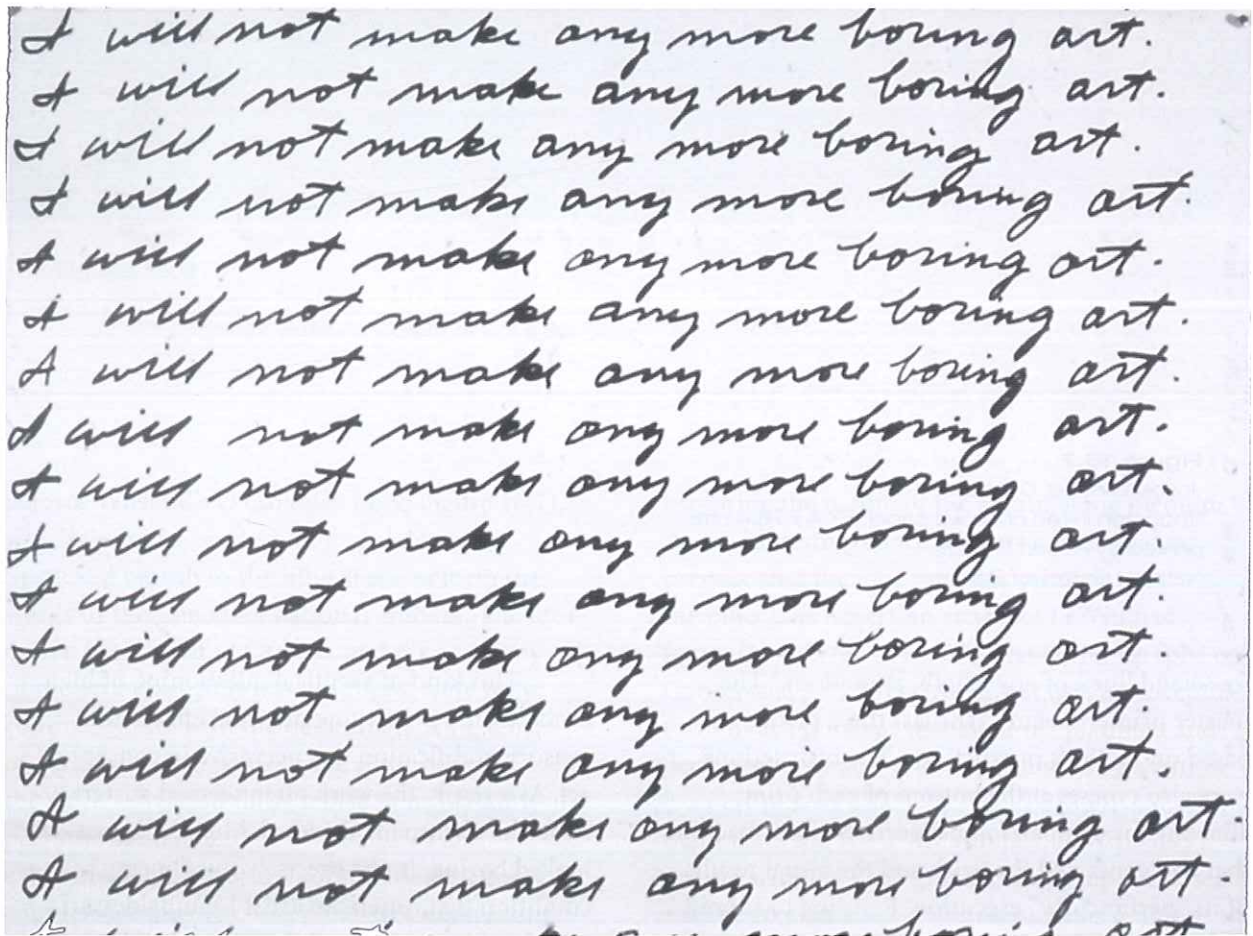 I will not make any more boring art.
I will not make any more boring art.
I will not make any more boring art.
I will not make any more boring art.
I will not make any more boring art.
I will not make any more boring art.
I will not make any more boring art.
I will not make any more boring art.
I will not make any more boring art.
I will not make any more boring art.
I will not make any more boring art.
I will not make any more boring art
I will not make any more boring art.
I will not make any more boring art.
I will not make any more boring art.
I will not make any more boring art.